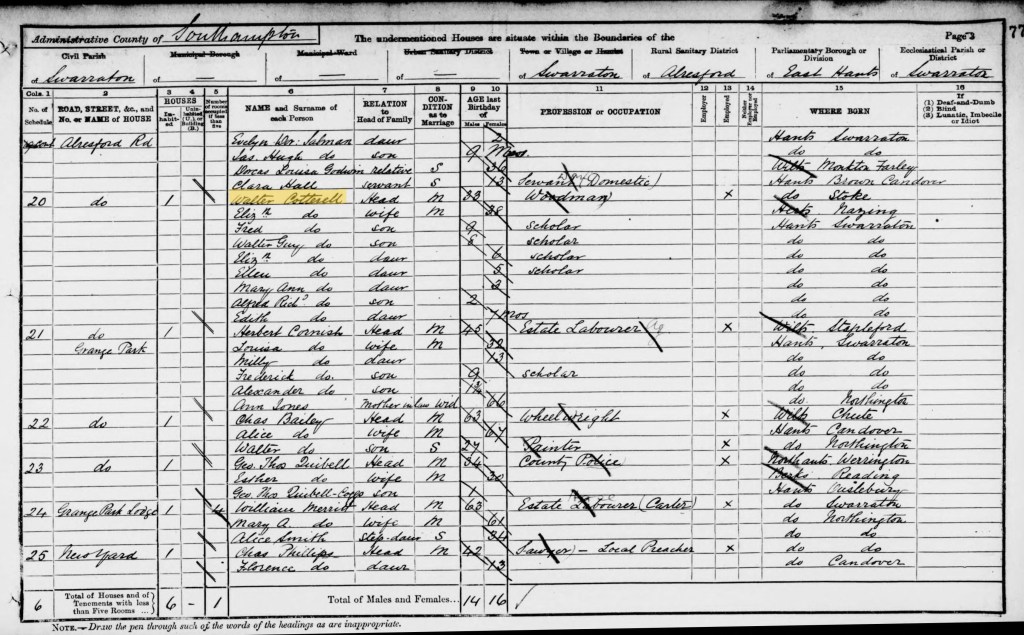 Administrative County of Southampton The undermentioned Houses are situate within the Boundaries of the Page 3 77
Civil Parish Municipal Borough Municipal Ward Urban Sanitary District Town or Village or Hamlet Rural Sanitary District Parliamentary Borough or Division Ecclesiastical Parish or District
of Swarraton of — of — of — of Swarraton of Alresford of East Hants of Swarraton
Cols. 1 2 3 4 5 6 7 8 9 10 11 12 13 14 15 16
No. of Schedule ROAD, STREET, &c., and No. or NAME of HOUSE HOUSES Inhabited Uninhabited (U.) or Building (B.) Number of rooms occupied if less than five NAME and Surname of each Person RELATION to Head of Family CONDITION as to Marriage AGE last Birthday of Males Females PROFESSION or OCCUPATION Employer Employed Neither Employer nor Employed WHERE BORN If (1) Deaf-and-Dumb (2) Blind (3) Lunatic, Imbecile or Idiot
Alresford Rd Evelyn daur 2 Hants Swarraton
Jas. Hugh do son 9 Mos. do do
Dorcas Louisa Godwin relative S 36 Wilts Monkton Farley
Clara Hall servant S 13 Servant (Domestic) Hants Brown Candover
20 do 1 Walter Cotterell Head M 39 Woodman x do Stoke
Elizth do wife M 38 Herts Nazing
Fred do son 9 scholar Hants Swarraton
Walter Guy do son 8 scholar do do
Elizth do daur 6 scholar do do
Ellen do daur 5 scholar do do
Mary Ann do daur 3 do do
Alfred Richd do son 2 do do
Edith do daur 7 mos do do
21 do 1 Herbert Cornish Head M 45 Estate Labourer Ag x Wilts Stapleford
Grange Park Louisa do wife M 32 Hants Swarraton
Milly do daur 13 do do
Frederick do son 9 scholar do do
Alexander do son do do
Ann Jones Mother in law Wid 66 do Northington
22 do 1 Chas Bailey Head M 63 Wheelwright x Wilts Chute
Alice do Wife M 67 Hants Candover
Walter do son S 27 Painter x do Northington
23 do 1 Geo. Thos Quibell Head M 34 County Police x Northants Werrington
Esther do wife M 30 Berks Reading
Geo. Thos Quibell-Copps son 1 Hants Owslebury
24 Grange Park Lodge 1 4 William Merritt Head M 63 Estate Labourer (Carter) x do Swarraton
Mary A. do wife M 61 do Northington
Alice Smith Step-daur S 34 do do
25 New Yard 1 Chas Phillips Head M 42 Sawyer – Local Preacher x do do
Florence do daur 13 do Candover
6 Total of Houses and of Tenements with less than Five Rooms ... 6 - 1 Total of Males and Females... 14 16
NOTE.—Draw the pen through such of the words of the headings as are inappropriate.